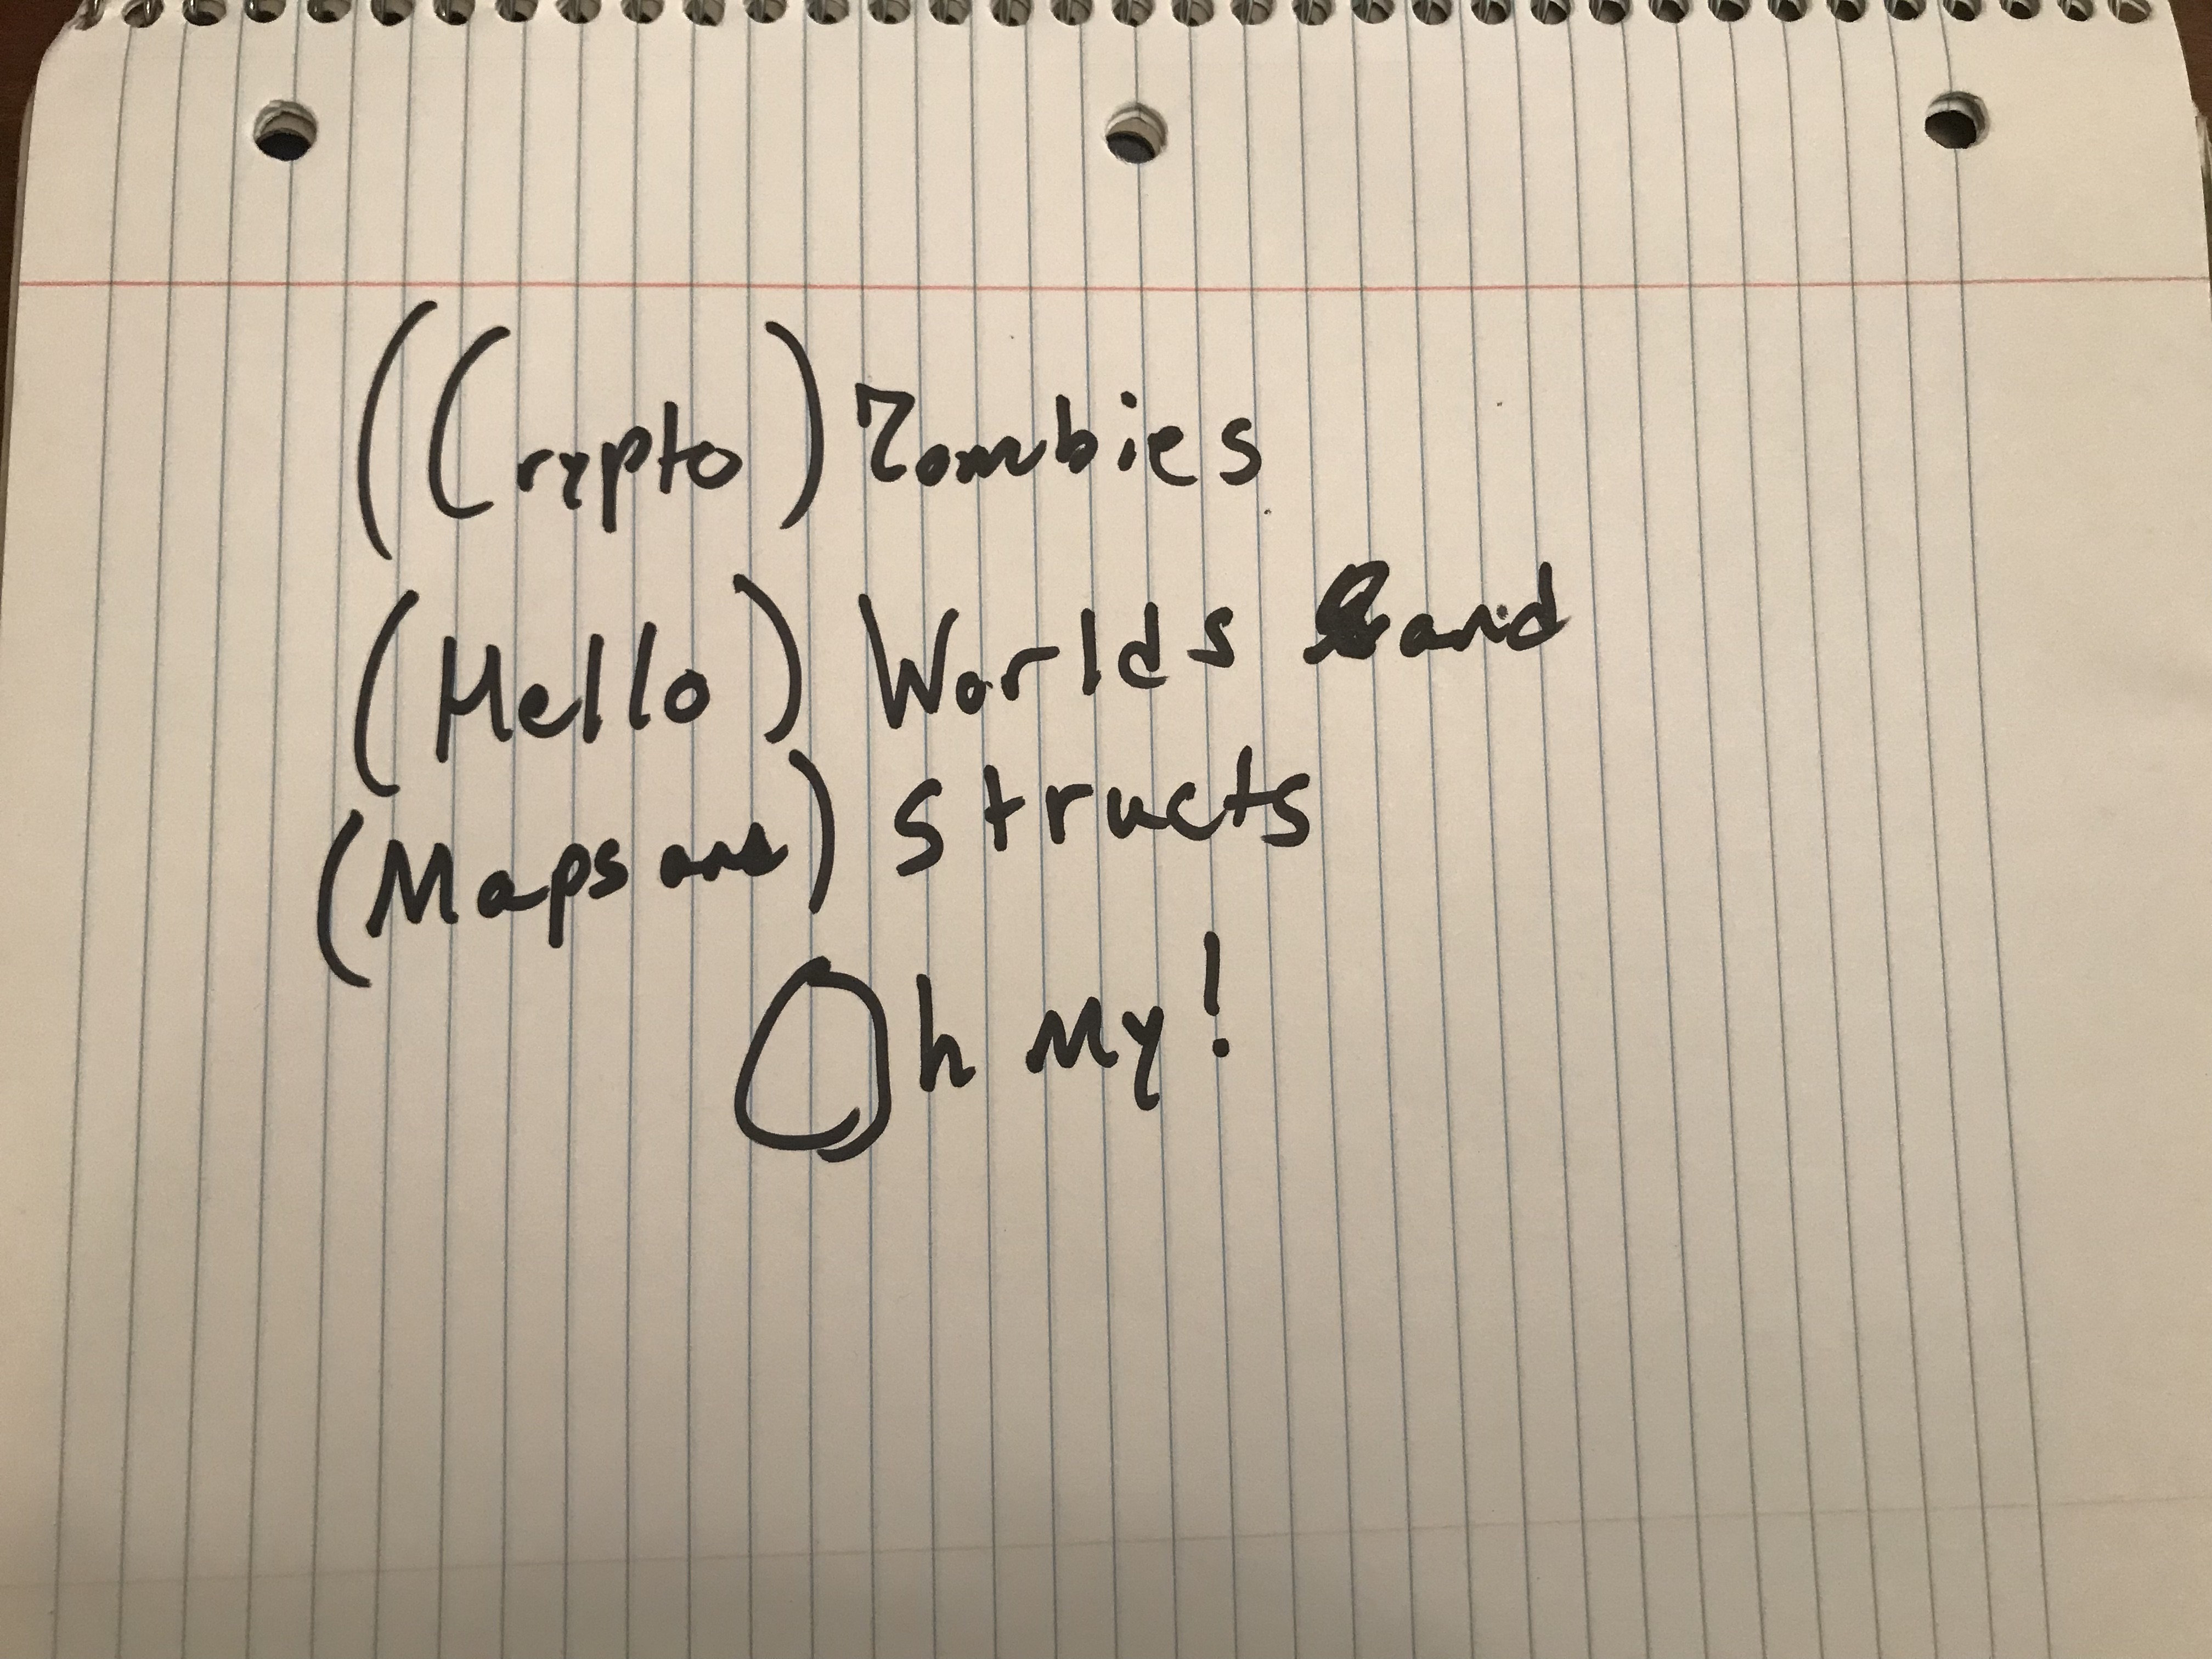 (Crypto) Zombies
(Hello) Worlds and
(Maps and) structs
Oh my!